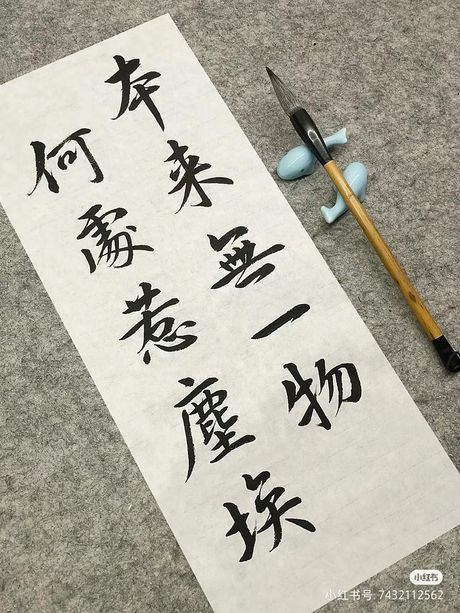 本来無一物
何處惹塵埃
小红书
小红书号: 7432112562